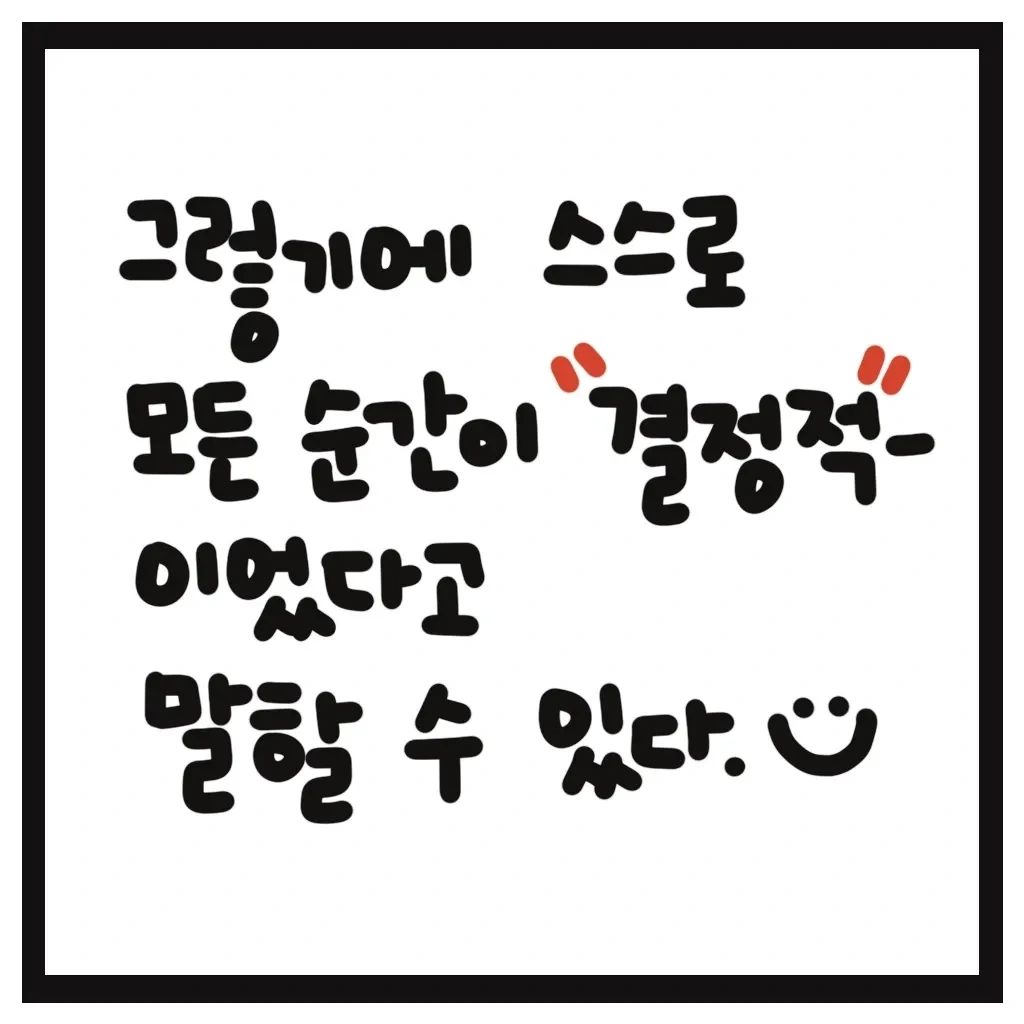 그렇기에 스스로
모든 순간이 "결정적-
이었다고
말할 수 있다.